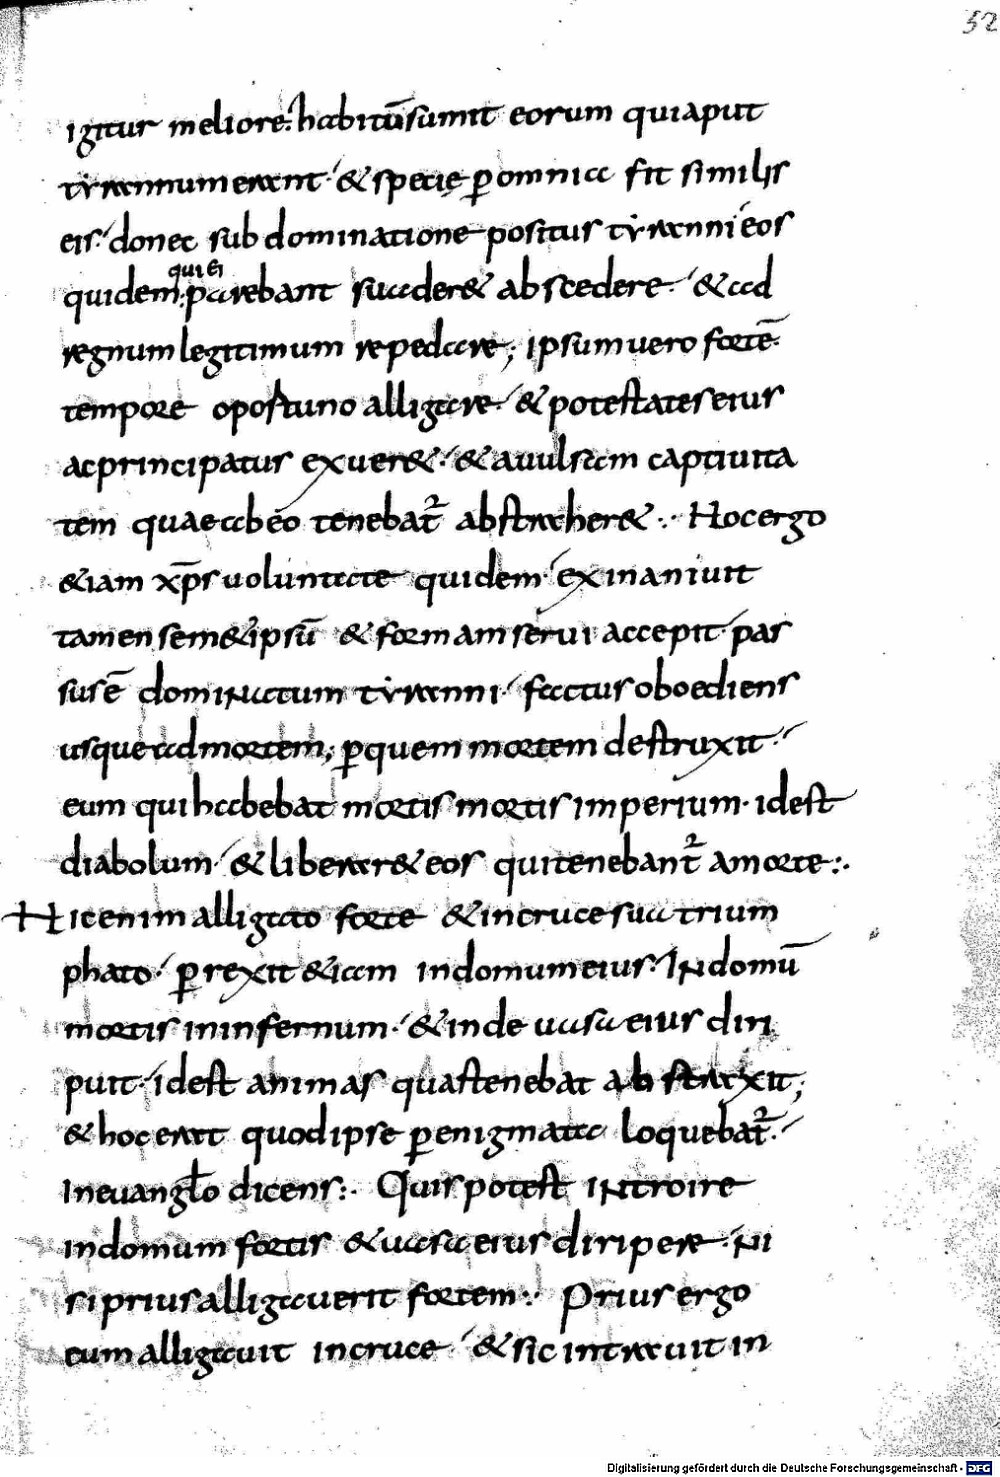 52
igitur meliore: habitū sumit eorum qui aput
tẏrannum erant· & specię ꝑ omnia fit similis
eis· donec sub dominatione positus tẏranni eos
qui ei
quidem· parebant suader& abscedere· & ad
regnum legitimum repedare; ipsum uero fortē·
tempore oportuno alligare· & potestates eius
ac principatus exuer&· & auulsam captiuita
tem quae ab eo tenebat᷑ abstraher&:· Hoc ergo
&iam xp̄s uoluntate quidem exinaniuit
tamen sem& ipsū & formam serui accepit· pas
sus ē dominatum tẏranni· factus oboediens
usque ad mortem; ꝑ quem mortem destruxit·
eum qui habebat mortis mortis imperium· id est
diabolum· & liberar& eos qui tenebant᷑ a morte:·
Hic enim alligato forte & in cruce sua trium
phato· ꝑrexit &iam in domum eius· In domū
mortis in infernum· & inde uasa eius diri
puit· id est animas quas tenebat abstraxit;
& hoc erat quod ipse ꝑ enigmata loquebat᷑·
In euanglo dicens:· Quis potest introire
in domum fortis & uasa eius diripere· ni
si prius alligauerit fortem:· Prius ergo
eum alligauit in cruce· & sic intrauit in
Digitalisierung gefördert durch die Deutsche Forschungsgemeinschaft - DFG